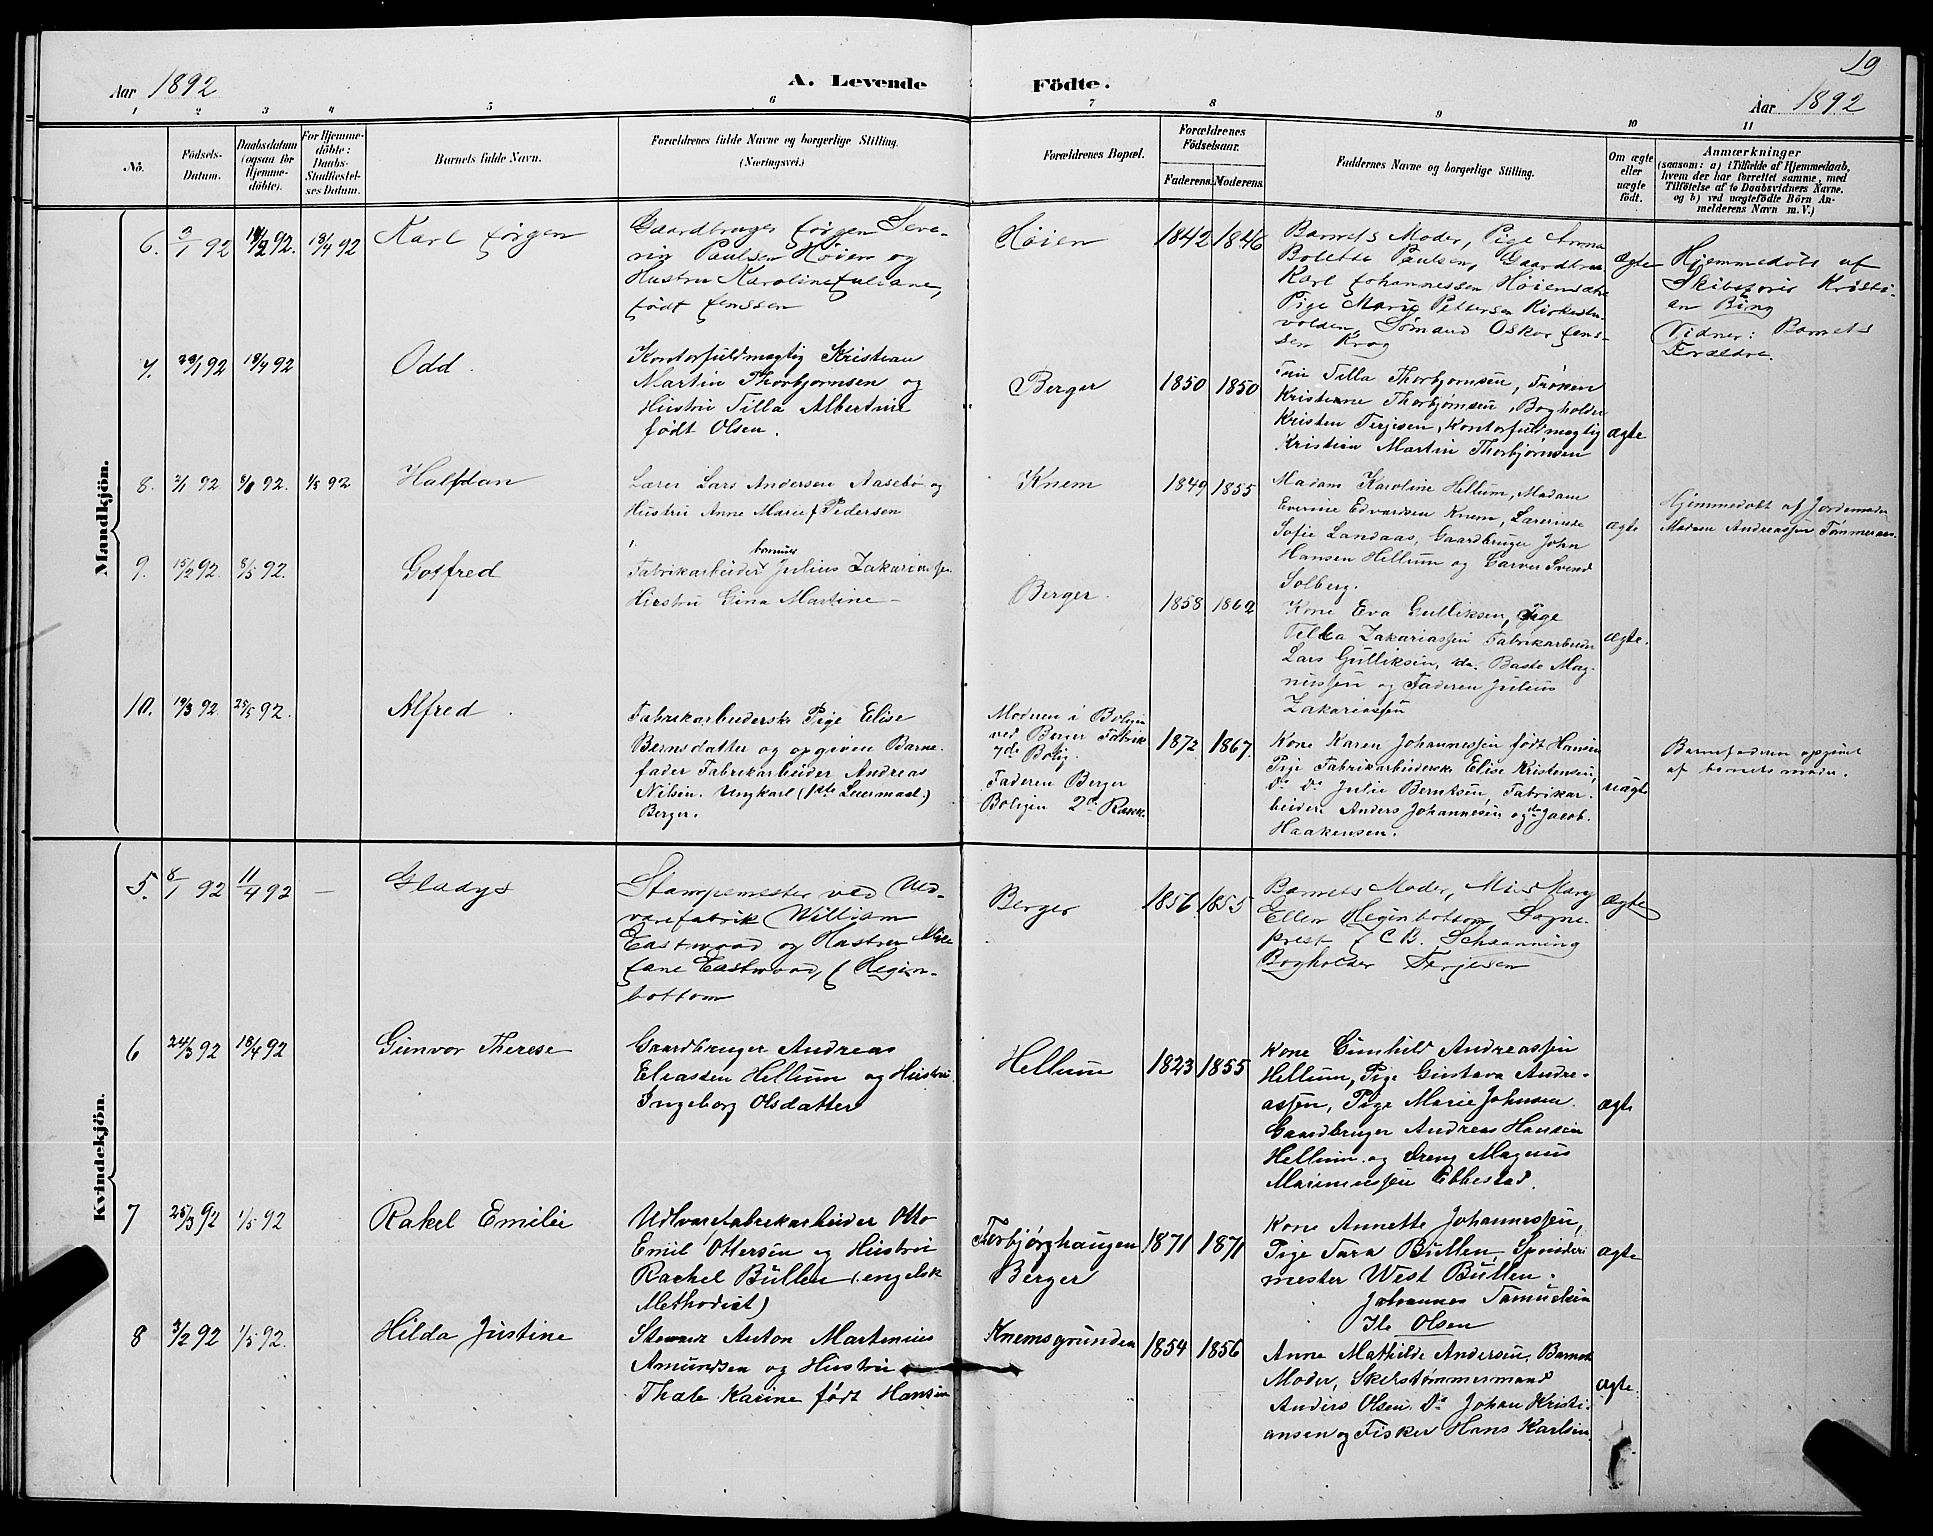 19
Aar 1892
A. Levende Födte.
Aar 1892
1 2 3 4 5 6 7 8 9 10 11
No.
Födsels-Datum.
Daabsdatum (ogsaa for Hjemmedöbte).
For Hjemmedöbte: Daabs-Stadfæstelses Datum.
Barnets fulde Navn.
Forældrenes fulde Navne og borgerlige Stilling.
(Næringsvei.)
Forældrenes Bopæl.
Forældrenes Födselsaar.
Faderens. Moderens.
Faddernes Navne og borgerlige Stilling.
Om ægte eller uægte født.
Anmærkninger
(saasom: a) i Tilfælde af Hjemmedaab,
hvem der har forrettet samme, med
Tilföielse af to Daabsvidners Navne.
og b) ved uægtefödte Börn An-
melderens Navn m. V.)
Mandkjön.
6. 2/1 92 92. 18/4 92
Karl Jörgen
Gaardbruger Jörgen Seve-
rin Paulsen Höien og
Hustru Karoline Juliane,
född Jenssen
Höien
1842 1846
Barnets Moder, Pige Anna
Bolette Paulsen, Gaardbru
Karl Johannessen Höiensætre
Pige Marie Pettersen Kirkestu-
volden, Sömand Oskar Jens-
sen Krog
ægte
Hjemmedöbt af
Skibsförer Kristi-
an Bing
Vidner: Barnets
Foræeldre.
7. 92 18/4 92
Odd.
Kontorfuldmægtig Kristian
Martin Thorbjørnsen og
Hustru Tilla Albertine
født Olsen.
Berger
1850 1850
Tilla Thorbjørnsen, Frøken
Kristiane Thorbjørnsen, Bogholder
Kristen Terjesen, Kontorfuldmægtig
Kristian Martin Thorbjørnsen
ægte
8. 2/1 92 92. 1/5 92
Halfdan
Lærer Lars Andersen Aasebø og
Hustru Anne Marie f Pedersen
Knem
1849 1855
Madam Karoline Hellum, Madam
Evernie Edvardsen Knem, Lærerinde
Sofie Landaas, Gaardbruger John
Hansen Hellum og Garver Svend
Solberg.
ægte
Hjemmedøbt af Jordemoder
Madam Andreassen Tømmeraas.
9. 15/2 92. 8/5 92.
Gotfred
Fabrikarbeider Julius Zakariassen
Hustru Gina Martine
Berger.
1858 1862
Kone Eva Gulliksen, Pige
Tilla Zakariassen Fabrikarbeider
Lars Gulliksen, do. Baste Mag-
nussen og Faderen Julius
Zakariassen
ægte.
10. 19/3 92. 25/5 92.
Alfred
Fabrikarbeiderske Pige Elise
Berntsdatter og opgiven Barne-
fader Fabrikarbeider Andreas
Nilsen. Ungkarl (1ste Leiermaal)
Berger.
Moderen i Boligen
ved Berger Fabrik
7de Bolig.
Faderen Berger
Boligen
1872 1867.
Kone Karen Johannessen født Hansen
Pige Fabrikarbeiderske Elise Kristensen,
Do Do Julie Berntsen, Fabrikar-
beider Anders Johannesen og do Jacob
Haakensen.
uægte
Barnefaderen opgivet
af barnets moder.
Kvindekjön.
5. 8/1 92 11/4 92 —
Gladys
Stampemester ved Uld-
varefabrik William
Eastwood og Hustru
Jane Eastwood, f Hegin-
bottom
Berger
1856 1855
Barnets Moder, Miss Mary
Ellen Heginbottom Sogne-
prest J C B. Schanning
Bogholder Terjesen
ægte
6 24/3 92 18/4 92
Gunvor Therese
Gaardbruger Andreas
Eliassen Hellum og Hustru
Ingeborg Olsdatter
Hellum
1823 1855
Kone Gunhild Andreassen
Hellum, Pige Gustava Andre-
assen, Pige Marie Johnsen
Gaardbruger Andreas Hansen
Hellum og Dreng Magnus
Marinussen Ebbestad.
ægte
7 25/3 92 1/5 92
Rakel Emilie
Uldvarefabrikarbeider Otto
Emil Ottersen og Hustru
Rachel Büllen (engelsk
Methodist)
Torbjørghaugen
Berger
1871 1871
Kone Annette Johannessen,
Pige Sara Bullen, Spinderi
mester West Bullen.
Johannes Samuelsen
Ile Olsen
ægte
8 3/2 92 1/5 92.
Hilda Justine
Steward Anton Martinius
Amundsen og Hustru
Thale Karine født Hansen
Knemsgrunden
1854 1856
Anne Mathilde Andersen, Barnets
Moder, Skibstømmermand
Anders Olsen. Do Johan Kristi-
ansen og Fisker Hans Karlsen.
ægte.